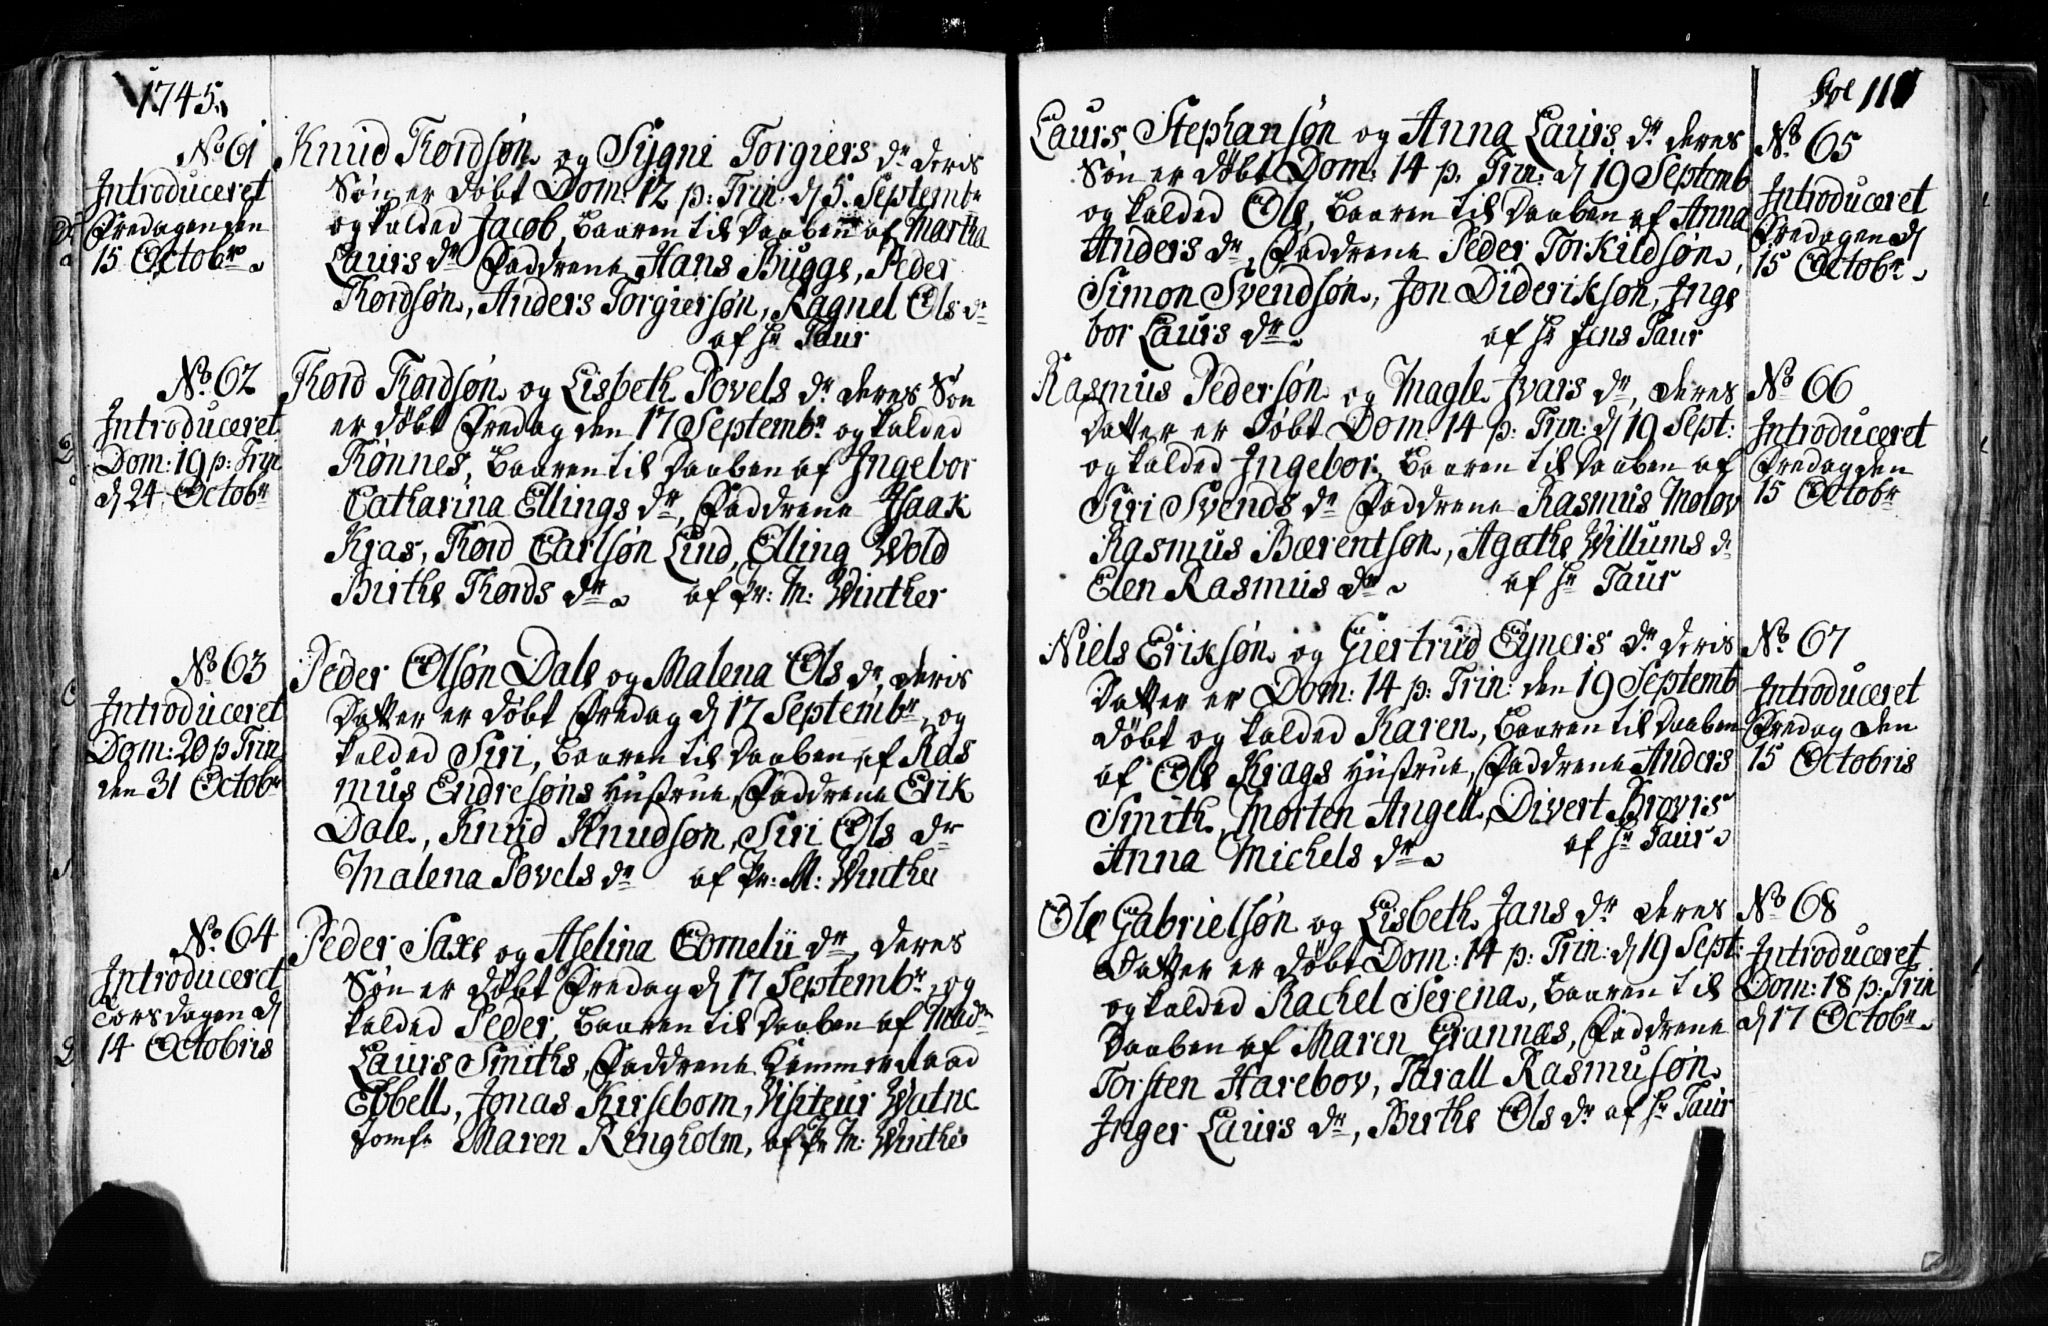 1745.
No 61
Introduceret
Fredagen den
15 Octobr
Knud Tordsøn og Sygni Torgiers dr deris
Søn er døbt Dom: 12 p: Trin: d 5. Septembr
og kalded Jacob, baaren til Daaben af Martha
Laurs dr Faddrene Hans Bugge, Peder
Tordsøn, Anders Torgiersøn, Ragnel Ols dr
af Hr Taur
No 62
Introduceret
Dom: 19 p: Trin
d 24 Octobr
Tord Tordsøn og Lisbeth Povels dr deres Søn
er døbt Fredag den 17 Septembr og kalded
Tønnes, baaren til Daaben af Ingebor
Catharina Ellings dr, Faddrene Isaak
Kras, Tord Carlsøn Lind, Elling Wold
Birthe Tords dr af Pr: M: Winther
No 63
Introduceret
Dom: 20 p Trin
den 31 Octobr
Peder Olsøn Dale og Malena Ols dr, deris
Datter er døbt Fredag d 17 Septembr, og
kalded Siri, baaren til Daaben af Ras
mus Endresøns Hustrue, Faddrene Erik
Dale, Knud Knudsøn, Siri Ols dr
Malena Povels dr af Pr: M: Winther
No 64
Introduceret
Torsdagen d
14 Octobris
Peder Saxe og Aselina Cornelii dr, deres
Søn er døbt Fredag d 17 Septembr, og
kalded Peder, baaren til Daaben af Madm
Laurs Smiths, Faddrene Kammerraad
Ebbell, Jonas Kirsebom, Visiteur Watne
Jomfr Maren Ringholm, af Pr M: Winther
Fol 110
Laurs Stephansøn og Anna Laurs dr deres
Søn er døbt Dom: 14 p. Trin: d 19 Septemb
og kalded Ole, baaren til Daaben af Anna
Anders dr, Faddrene Peder Torkildsøn,
Simon Svendsøn, Jon Dideriksøn, Inge
bor Laurs dr af Hr Jens Taur
No 65
Introduceret
Fredagen d
15 Octobr
Rasmus Pedersøn og Magle Ivars dr, deres
Datter er døbt Dom: 14 p: Trin: d 19 Sept:
og kalded Ingebor, baaren til Daaben af
Siri Svends dr Faddrene Rasmus Moløv
Rasmus Bærentsøn, Agathe Willums dr
Elen Rasmus dr af Hr Taur
No 66
Introduceret
Fredag den
15 Octobr
Niels Eriksøn og Giertrud Eyners dr deris
Datter er Dom: 14 p: Trin: den 19 Septemb
døbt og kalded Karen, baaren til Daaben
af Ole Krags Hustrue, Faddrene Anders
Smith, Morten Angell, Divert Brovis
Anna Michels dr af Hr Taur
No 67
Introduceret
Fredag den
15 Octobris
Ole Gabrielsøn og Lisbeth Jans dr deres
Datter er døbt Dom: 14 p: Trin: d 19 Sept:
og kalded Rachel Serena, baaren til
Daaben af Maren Grannæs, Faddrene
Torsten Harebov, Tarall Rasmusøn
Inger Laurs dr, Birthe Ols dr af Hr Taur
No 68
Introduceret
Dom: 18 p: Trin
d 17 Octobr